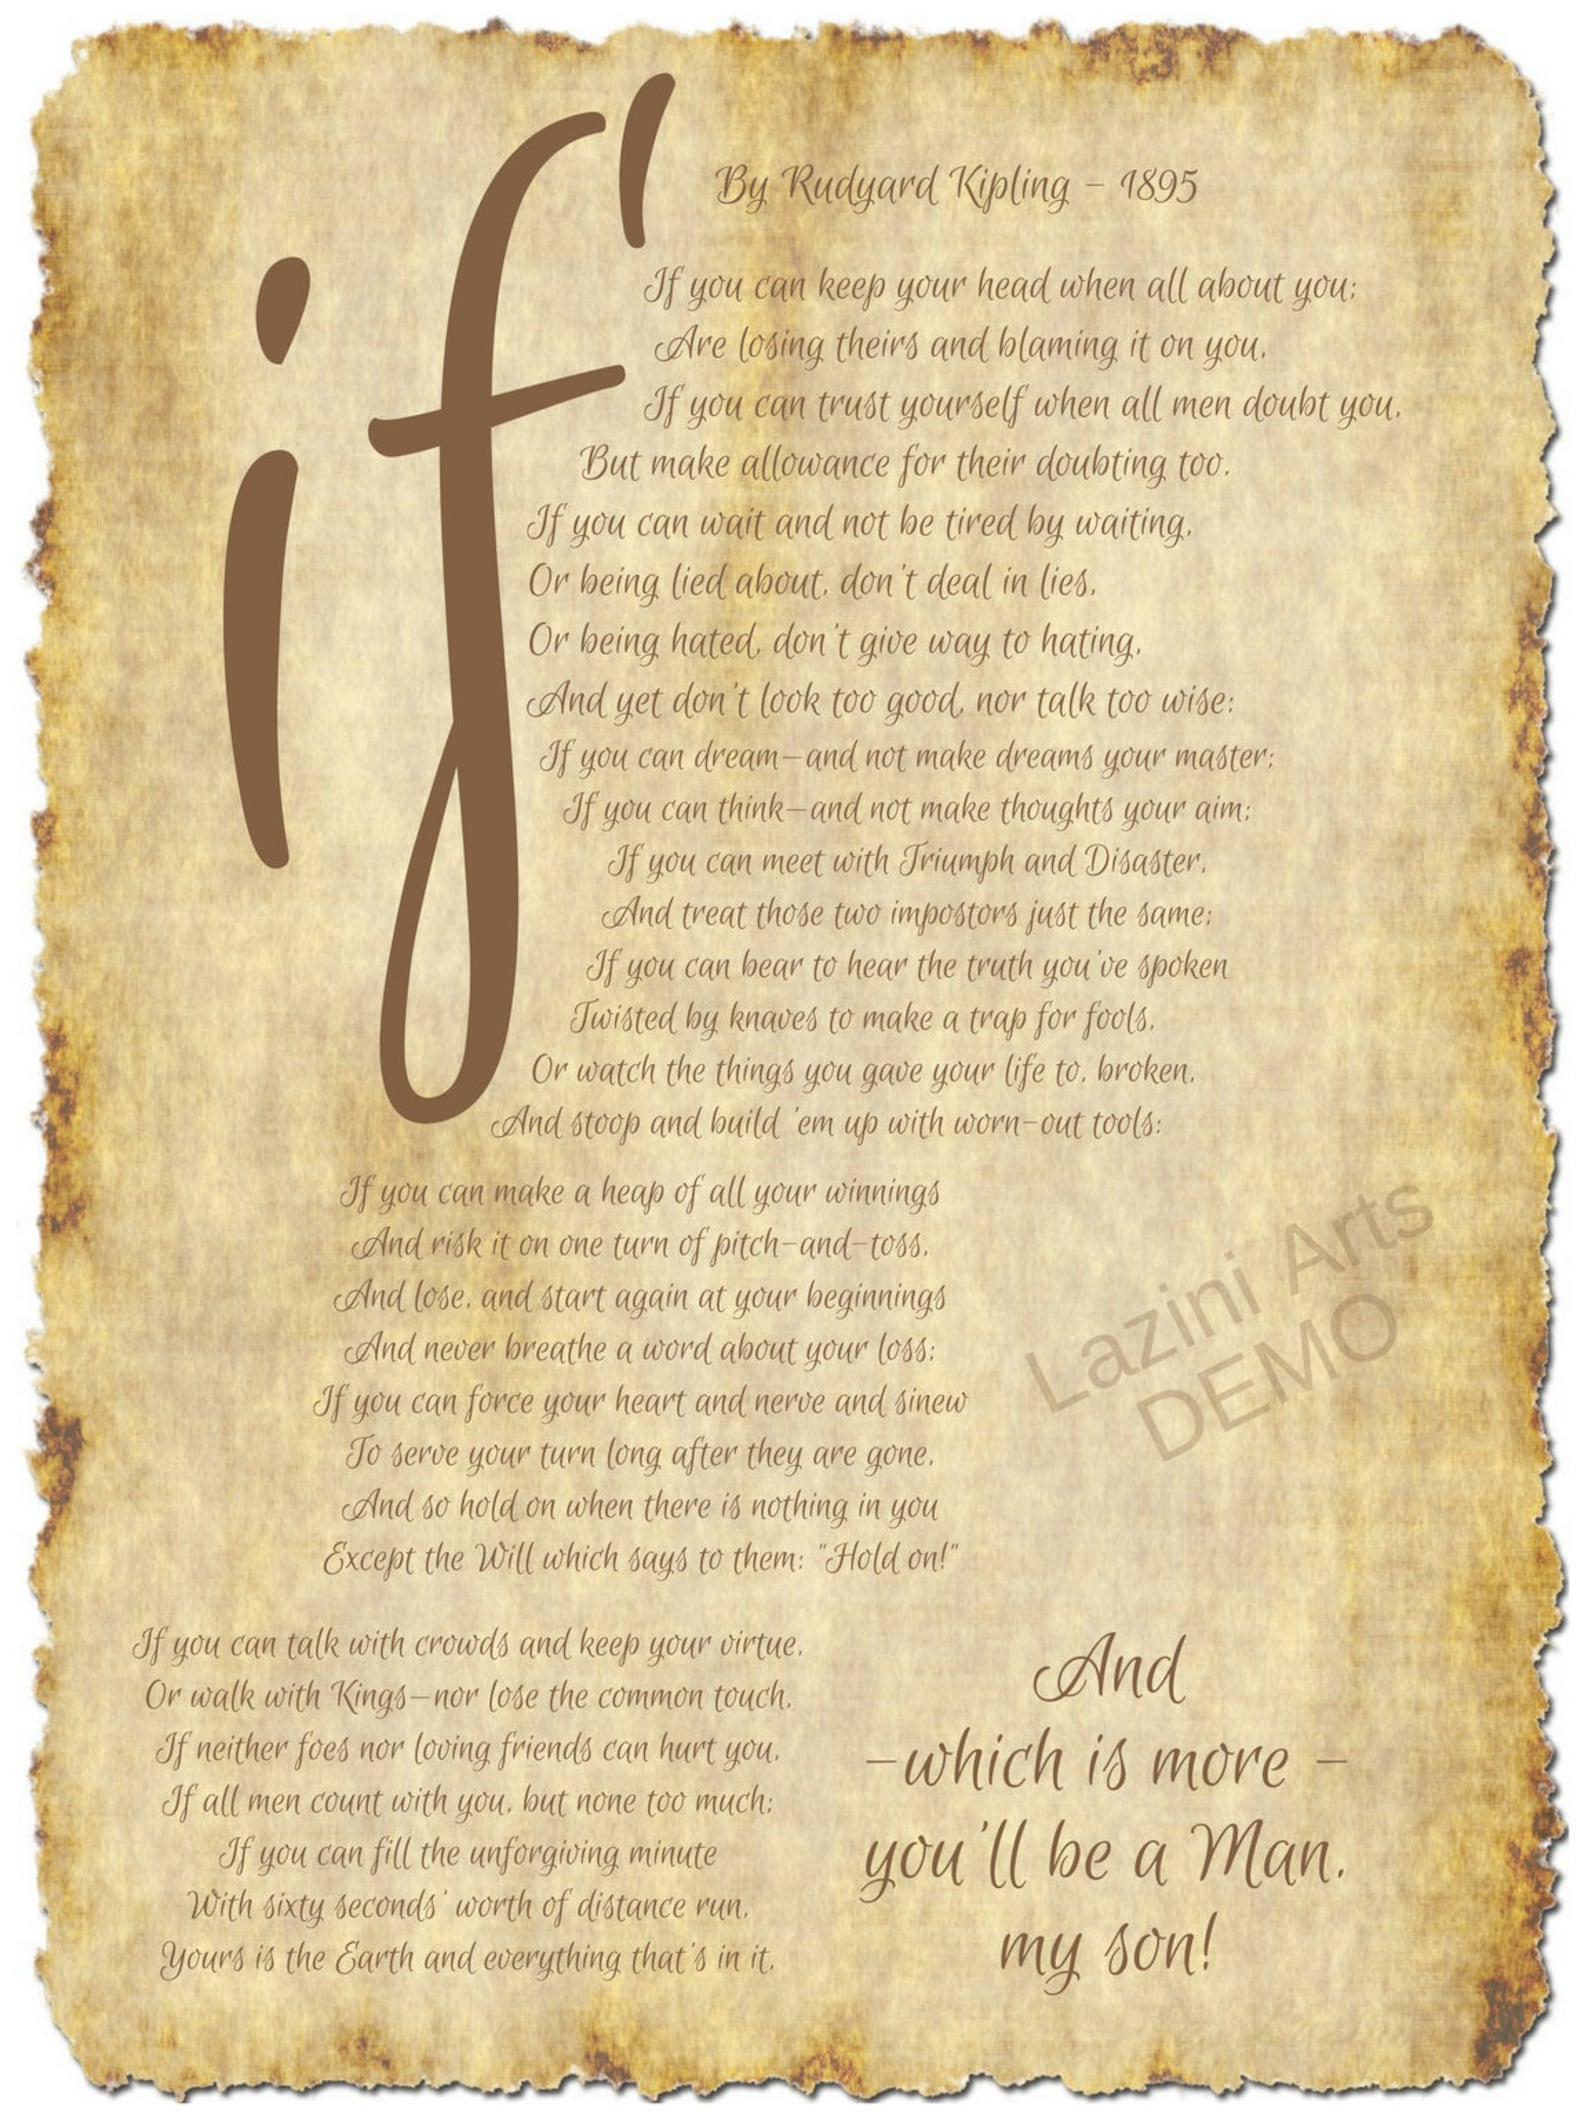 if'
By Rudyard Kipling – 1895
If you can keep your head when all about you;
Are losing theirs and blaming it on you,
If you can trust yourself when all men doubt you,
But make allowance for their doubting too.
If you can wait and not be tired by waiting,
Or being lied about, don't deal in lies,
Or being hated, don't give way to hating,
And yet don't look too good, nor talk too wise:
If you can dream—and not make dreams your master;
If you can think—and not make thoughts your aim;
If you can meet with Triumph and Disaster,
And treat those two impostors just the same;
If you can bear to hear the truth you've spoken
Twisted by knaves to make a trap for fools,
Or watch the things you gave your life to, broken,
And stoop and build 'em up with worn-out tools:
If you can make a heap of all your winnings
And risk it on one turn of pitch-and-toss,
And lose, and start again at your beginnings
And never breathe a word about your loss;
If you can force your heart and nerve and sinew
To serve your turn long after they are gone,
And so hold on when there is nothing in you
Except the Will which says to them: "Hold on!"
Lazini Arts
DEMO
If you can talk with crowds and keep your virtue,
Or walk with Kings—nor lose the common touch,
If neither foes nor loving friends can hurt you,
If all men count with you, but none too much;
If you can fill the unforgiving minute
With sixty seconds' worth of distance run,
Yours is the Earth and everything that's in it,
And
–which is more –
you'll be a Man,
my son!